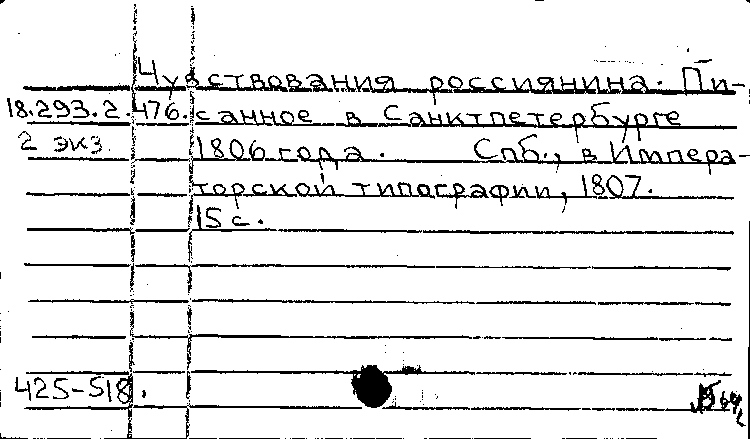 Чувствования россиянина. Пи-
18.293.2.476. санное в Санктпетербурге
2 экз. 1806 года. Спб., в Импера-
торской типографии, 1807.
15 с.
425-518.